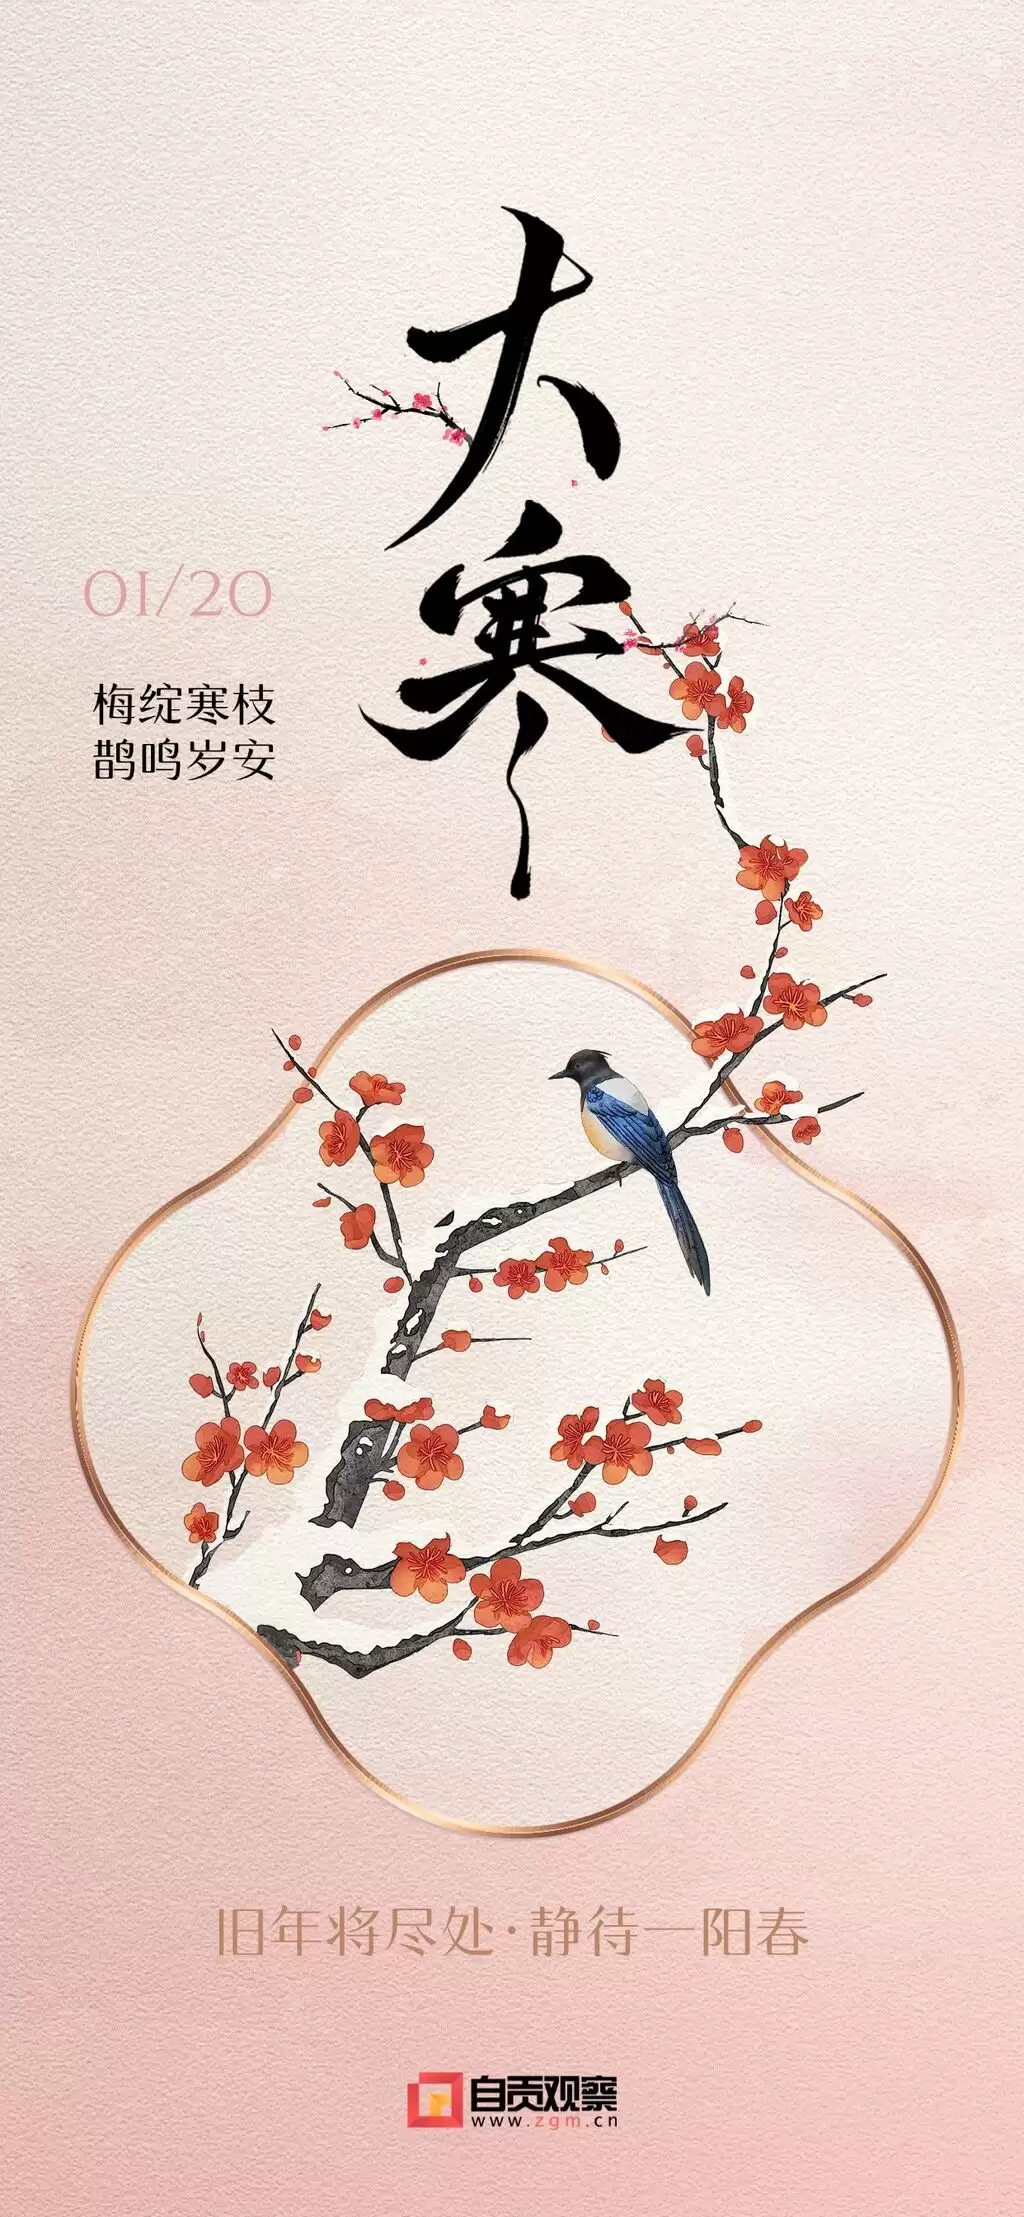 大寒
01/20
梅绽寒枝
鹊鸣岁安
旧年将尽处·静待一阳春
自贡观察
www.zgm.cn